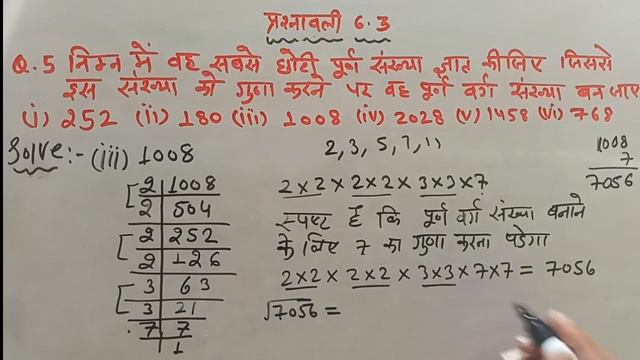 प्रश्नावली 6.3
Q.5 निम्न में वह सबसे छोटी पूर्ण संख्या ज्ञात कीजिए जिससे
इस संख्या को गुणा करने पर वह पूर्ण वर्ग संख्या बन जाए
(i) 252 (ii) 180 (iii) 1008 (iv) 2028 (v) 1458 (vi) 768
Solve:- (iii) 1008
2, 3, 5, 7, 11
1008
7
7056
2 1008
2 504
2 252
2 126
3 63
3 21
7 7
1
2×2×2×2×3×3×7
स्पष्ट है कि पूर्ण वर्ग संख्या बनाने
के लिए 7 का गुणा करना पड़ेगा
2×2×2×2×3×3×7×7 = 7056
√7056 =